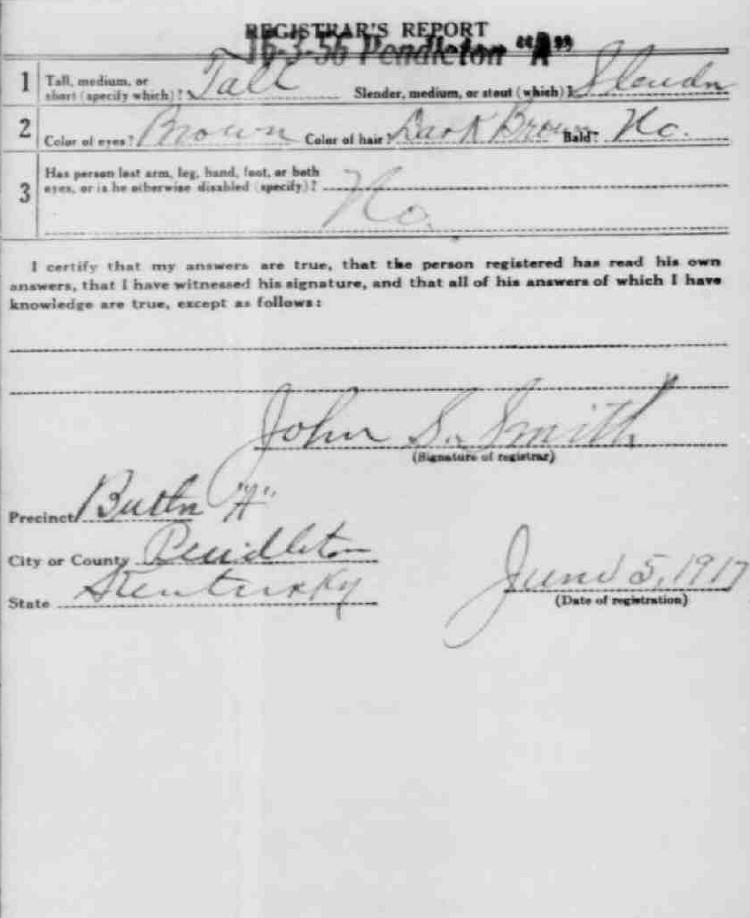 REGISTRAR'S REPORT
16-3-56 Pendleton "A"
1 Tall, medium, or short (specify which)? Tall Slender, medium, or stout (which)? Slender
2 Color of eyes? Brown Color of hair? Dark Brown Bald? No.
3 Has person lost arm, leg, hand, foot, or both
eyes, or is he otherwise disabled (specify)?
No.
I certify that my answers are true, that the person registered has read his own
answers, that I have witnessed his signature, and that all of his answers of which I have
knowledge are true, except as follows:
John S. Smith
(Signature of registrar)
Precinct Butler "A"
City or County Pendleton
State Kentucky
June 5, 1917
(Date of registration)